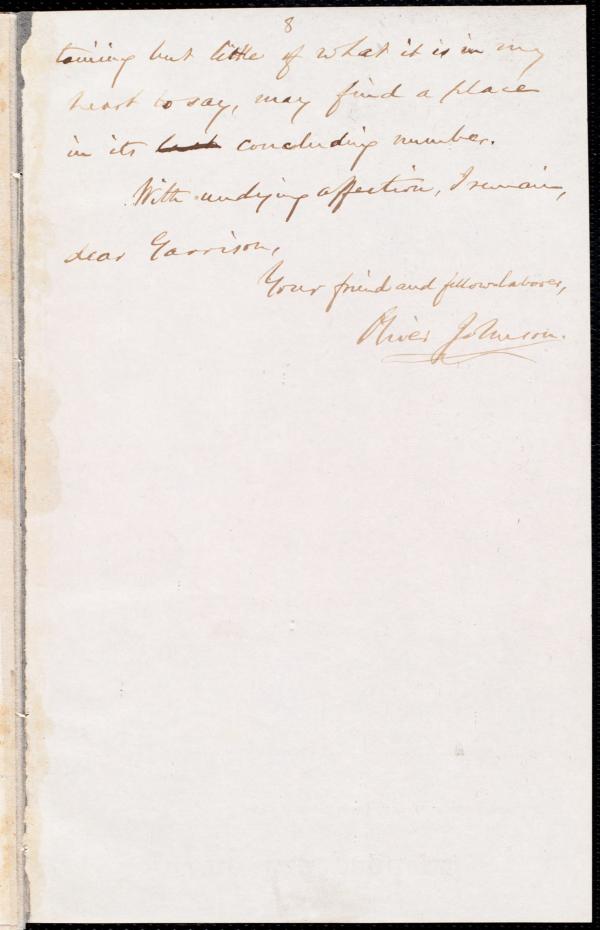 8
taining but little of what it is in my
heart to say, may find a place
in its last concluding number.
With undying affection, I remain,
dear Garrison,
Your friend and fellow-laborer,
Oliver Johnson.